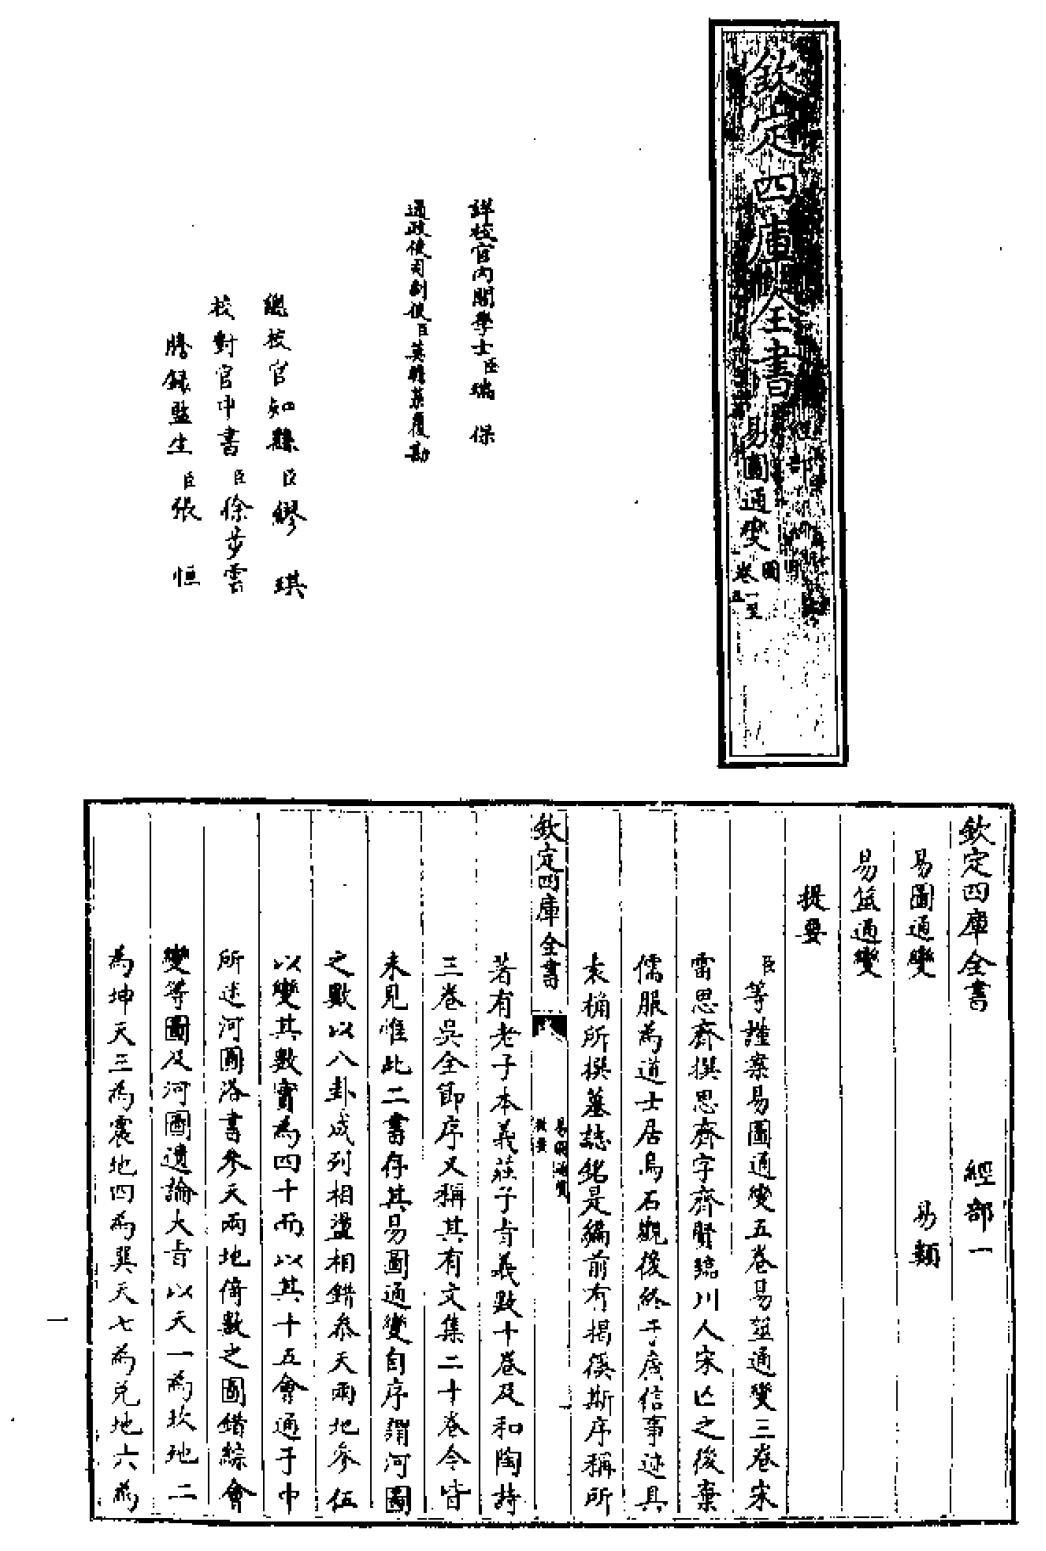 欽定四庫全書
經部
易圖通變
圖
卷一至
五
詳校官內閣學士臣瑞保
通政使司副使臣莫瞻菉覆勘
總校官知縣臣繆琪
校對官中書臣徐步雲
謄錄監生臣張恒
欽定四庫全書 經部一
易圖通變 易類
易筮通變
提要
臣等謹案易圖通變五卷易筮通變三卷宋
雷思齊撰思齊字齊賢臨川人宋亡之後棄
儒服為道士居烏石觀後終于廣信事迹具
袁桷所撰墓誌銘是編前有揭傒斯序稱所
欽定四庫全書
易圖通變
提要
著有老子本義莊子㫖義數十卷及和陶詩
三卷吳全節序又稱其有文集二十卷今皆
未見惟此二書存其易圖通變自序謂河圖
之數以八卦成列相盪相錯參天兩地參伍
以變其數實為四十而以其十五會通于中
所述河圖洛書參天兩地倚數之圖錯綜會
變等圖及河圖遺論大㫖以天一為坎地二
為坤天三為震地四為巽天七為兌地六為
一